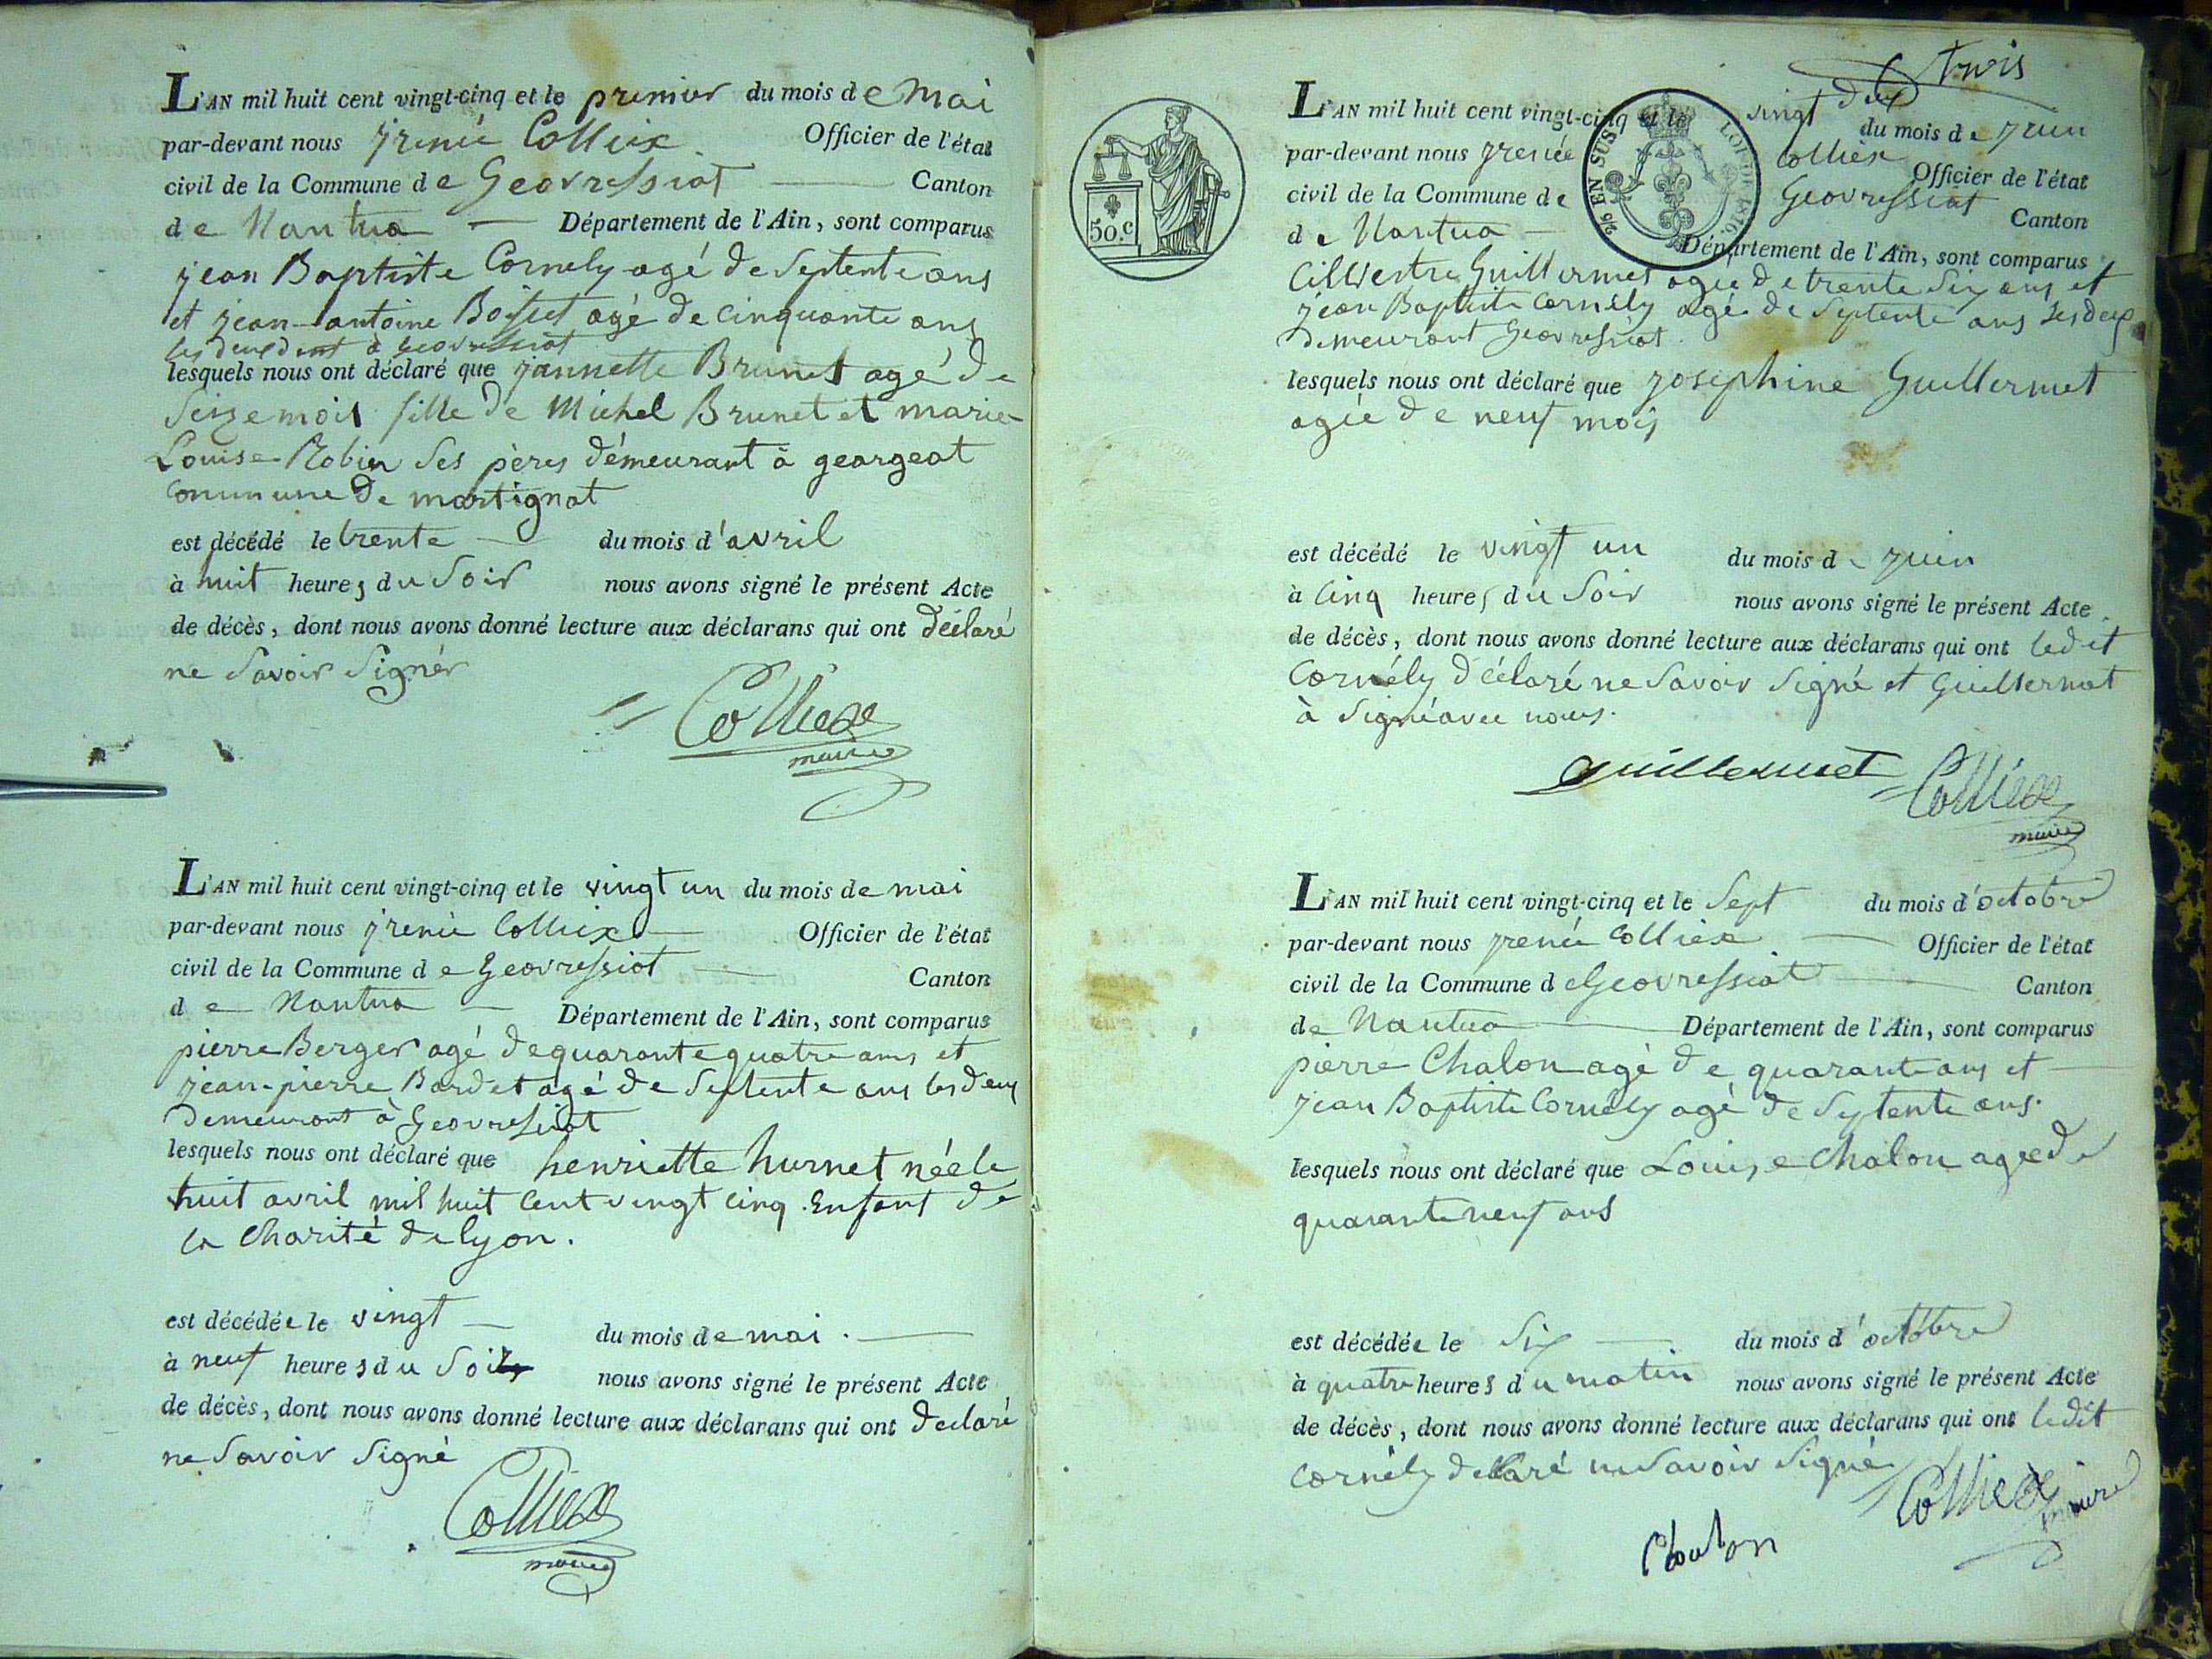 L'AN mil huit cent vingt-cinq et le premier du mois de mai
par-devant nous jrenée Colliex Officier de l'état
civil de la Commune de Geovressiat Canton
de Nantua Département de l'Ain, sont comparus
jean Baptiste Cornely agé de Septente ans
et jean-antoine Boisset agé de cinquante ans
les deux dmt à Geovressiat
lesquels nous ont déclaré que jannette Brunet agé de
Seize mois fille de Michel Brunet et marie-
Louise-Robin Ses pères démeurant à geargeat
Commune de martignat
est décédé le trente du mois d'avril
à huit heures du Soir nous avons signé le présent Acte
de décès, dont nous avons donné lecture aux déclarans qui ont déclaré
ne Savoir Signér
Colliex
maire
L'AN mil huit cent vingt-cinq et le vingt un du mois de mai
par-devant nous jrenée Colliex Officier de l'état
civil de la Commune de Geovressiat Canton
de Nantua Département de l'Ain, sont comparus
pierre Berger agé de quarante quatre ans et
jean-pierre Bardet agé de Septente ans les deux
Demeurant à Geovressiat
lesquels nous ont déclaré que henriette hurnet née le
huit avril mil huit Cent vingt cinq. Enfant de
la Charité de lyon.
est décédée le vingt du mois de mai.
à neuf heures du Soir nous avons signé le présent Acte
de décès, dont nous avons donné lecture aux déclarans qui ont déclaré
ne Savoir Signé
Colliex
maire
trois
L'AN mil huit cent vingt-cinq et le vingt deux du mois de juin
par-devant nous jrenée Colliex Officier de l'état
civil de la Commune de Geovressiat Canton
de Nantua Département de l'Ain, sont comparus
50.c
EN SUS
LOI DE 1816.
Cilvestre Guillermet agée de trente Six ans et
jean Baptiste Cornély agé de Septente ans les deux
Demeurant Geovressiat.
lesquels nous ont déclaré que josephine Guillermet
agée de neuf mois
est décédé le vingt un du mois de juin
à Cinq heures du Soir nous avons signé le présent Acte
de décès, dont nous avons donné lecture aux déclarans qui ont ledit
Cornély déclaré ne Savoir Signé et Guillermet
à Signé avec nous.
Guillermet Colliex
maire
L'AN mil huit cent vingt-cinq et le Sept du mois d'octobre
par-devant nous jrenée Colliex Officier de l'état
civil de la Commune de Geovressiat Canton
de Nantua Département de l'Ain, sont comparus
pierre Chalon agé de quarante ans et
jean Baptiste Cornély agé de Septente ans.
lesquels nous ont déclaré que Louise Chalon agee de
quarante neuf ans
est décédée le Six du mois d'octobre
à quatre heures du matin nous avons signé le présent Acte
de décès, dont nous avons donné lecture aux déclarans qui ont ledit
Cornély déclaré ne Savoir Signé
Colliex
maire
Chalon